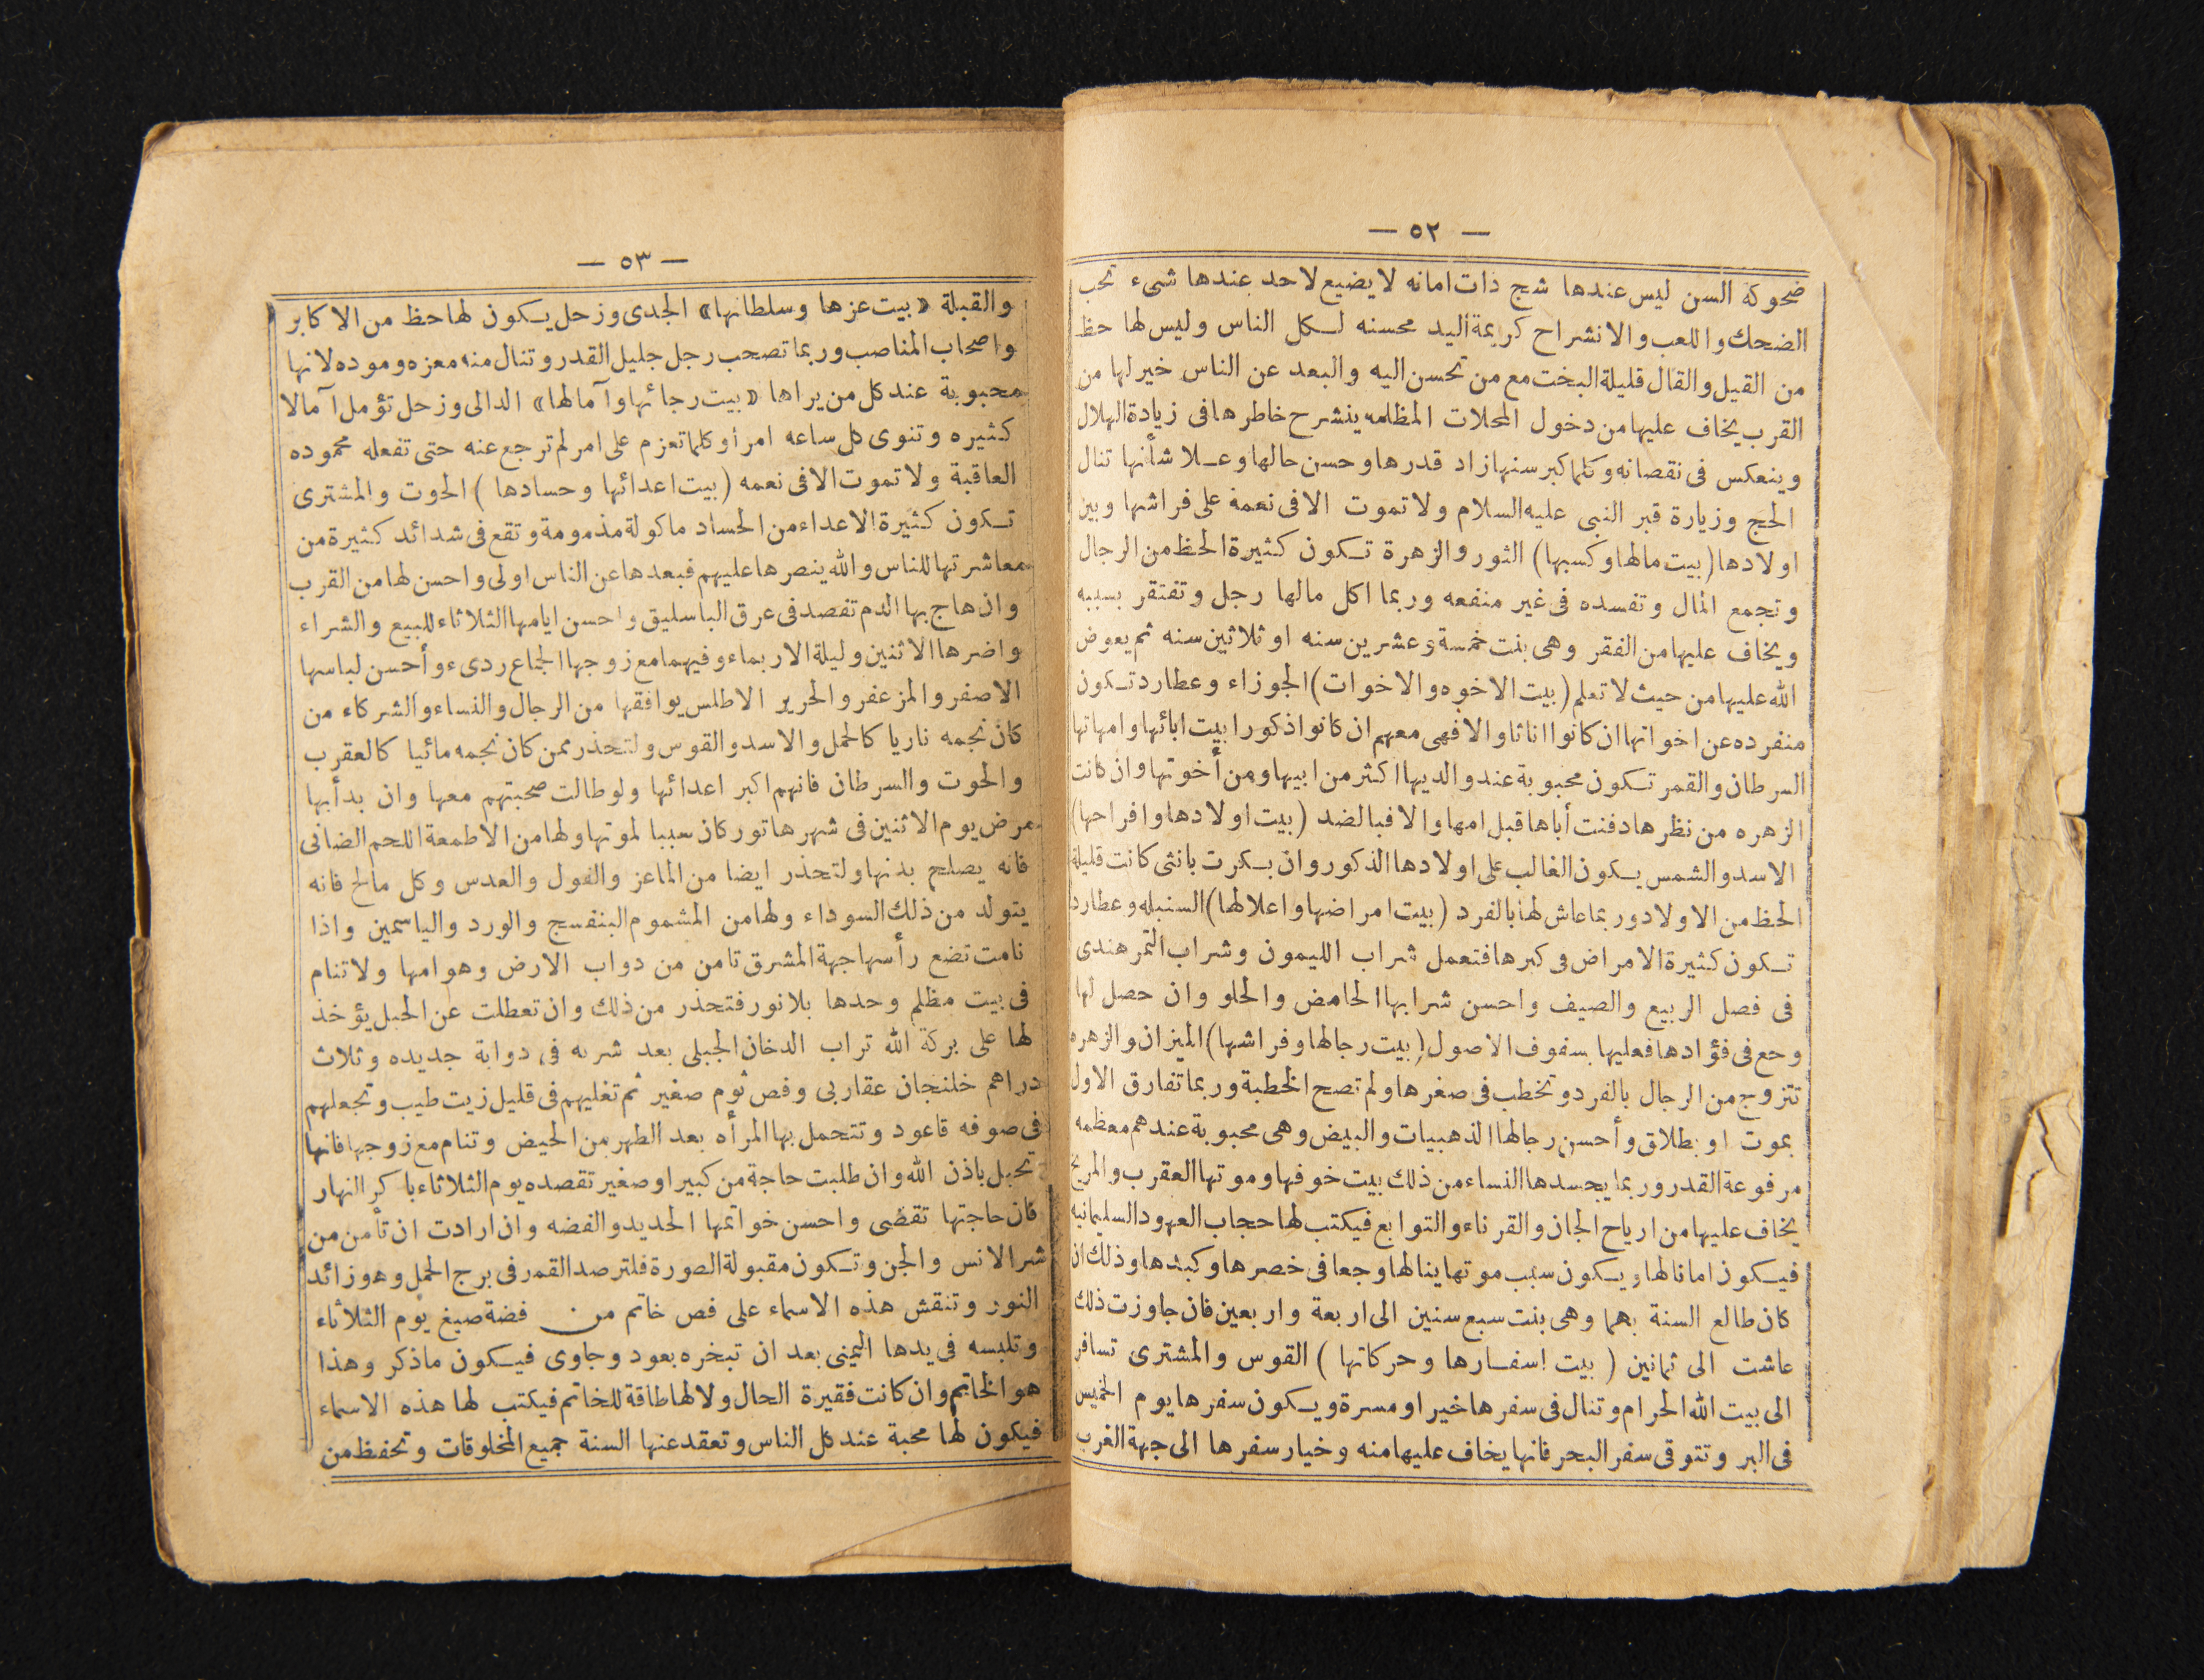 — ٥٢ —
ضحوكة السن ليس عندها شح ذات امانه لا يضيع لاحد عندها شىء تحب
الضحك واللعب والانشراح كريمة اليد محسنه لكل الناس وليس لها حظ
من القيل والقال قليلة البخت مع من تحسن اليه والبعد عن الناس خير لها من
القرب يخاف عليها من دخول المحلات المظلمه ينشرح خاطرها فى زيادة الهلال
وينعكس فى نقصانه وكلما كبر سنها زاد قدرها وحسن حالها وعلا شأنها تنال
الحج وزيارة قبر النبى عليه السلام ولا تموت الا فى نعمة على فراشها وبين
اولادها (بيت مالها وكسبها) الثور والزهرة تكون كثيرة الحظ من الرجال
وتجمع المال وتفسده فى غير منفعه وربما اكل مالها رجل وتفتقر بسببه
ويخاف عليها من الفقر وهى بنت خمسة وعشرين سنه او ثلاثين سنه ثم يعوض
الله عليها من حيث لا تعلم (بيت الاخوه والاخوات) الجوزاء وعطارد تكون
منفرده عن اخواتها ان كانوا اناثا والا فهى معهم ان كانوا ذكورا بيت ابائها وامهاتها
السرطان والقمر تكون محبوبة عند والديها اكثر من ابيها ومن أخوتها وان كانت
الزهره من نظرها دفنت أباها قبل امها والا فبالضد (بيت اولادها وافراحها)
الاسد والشمس يكون الغالب على اولادها الذكور وان بكرت بانثى كانت قليلة
الحظ من الاولاد وربما عاش لها بالفرد (بيت امراضها واعلالها) السنبله وعطارد
تكون كثيرة الامراض فى كبرها فتعمل شراب الليمون وشراب التمر هندى
فى فصل الربيع والصيف واحسن شرابها الحامض والحلو وان حصل لها
وجع فى فؤادها فعليها بسفوف الاصول (بيت رجالها وفراشها) الميزان والزهره
تتزوج من الرجال بالفرد وتخطب فى صغرها ولم تصح الخطبة وربما تفارق الاول
بموت او بطلاق وأحسن رجالها الذهبيات والبيض وهى محبوبة عندهم معظمه
مرفوعة القدر وربما يحسدها النساء من ذلك بيت خوفها وموتها العقرب والمريخ
يخاف عليها من ارياح الجان والقرناء والتوابع فيكتب لها حجاب العهود السليمانيه
فيكون امانا لها ويكون سبب موتها ينالها وجعا فى خصرها وكبدها وذلك ان
كان طالع السنة بهما وهى بنت سبع سنين الى اربعة واربعين فان جاوزت ذلك
عاشت الى ثمانين ( بيت اسفارها وحركاتها ) القوس والمشترى تسافر
الى بيت الله الحرام وتنال فى سفرها خير او مسرة ويكون سفرها يوم الخميس
فى البر وتتوقى سفر البحر فانها يخاف عليها منه وخيار سفرها الى جهة الغرب
— ٥٣ —
والقبلة «بيت عزها وسلطانها» الجدى وزحل يكون لها حظ من الاكابر
واصحاب المناصب وربما تصحب رجل جليل القدر وتنال منه معزه وموده لانها
محبوبة عند كل من يراها «بيت رجائها وآمالها» الدالى وزحل تؤمل آمالا
كثيره وتنوى كل ساعه امرا وكلما تعزم على امر لم ترجع عنه حتى تفعله محموده
العاقبة ولا تموت الا فى نعمه (بيت اعدائها وحسادها ) الحوت والمشترى
تكون كثيرة الاعداء من الحساد ماكولة مذمومة وتقع فى شدائد كثيرة من
معاشرتها للناس والله ينصرها عليهم فبعدها عن الناس اولى واحسن لها من القرب
وان هاج بها الدم تفصد فى عرق الباسليق واحسن ايامها الثلاثاء للبيع والشراء
واضرها الاثنين وليلة الاربماء وفيهما مع زوجها الجماع ردىء وأحسن لباسها
الاصفر والمزعفر والحرير الاطلس يوافقها من الرجال والنساء والشركاء من
كان نجمه ناريا كالحمل والاسد والقوس ولتحذر ممن كان نجمه مائيا كالعقرب
والحوت والسرطان فانهم اكبر اعدائها ولو طالت صحبتهم معها وان بدأ بها
مرض يوم الاثنين فى شهر هاتور كان سببا لموتها ولها من الاطمعة اللحم الضانى
فانه يصلح بدنها ولتحذر ايضا من الماعز والفول والعدس وكل مالح فانه
يتولد من ذلك السوداء ولها من المشموم البنفسج والورد والياسمين واذا
نامت تضع رأسها جهة المشرق تامن من دواب الارض وهوامها ولا تنام
فى بيت مظلم وحدها بلا نور فتحذر من ذلك وان تعطلت عن الحبل يؤخذ
لها على بركة الله تراب الدخان الجبلى بعد شربه فى دواية جديده وثلاث
دراهم خلنجان عقاربى وفص ثوم صغير ثم تغليهم فى قليل زيت طيب وتجعلهم
فى صوفه قاعود وتتحمل بها المرأه بعد الطهر من الحيض وتنام مع زوجها فانها
تحبل باذن الله وان طلبت حاجة من كبير او صغير تقصده يوم الثلاثاء باكر النهار
فان حاجتها تقضى واحسن خواتمها الحديد والفضه وان ارادت ان تأمن من
شر الانس والجن وتكون مقبولة الصورة فلترصد القمر فى برج الحمل وهو زائد
النور وتنقش هذه الاسماء على فص خاتم من فضة صيغ يوم الثلاثاء
وتلبسه فى يدها اليمنى بعد ان تبخره بعود وجاوى فيكون ماذكر وهذا
هو الخاتم وان كانت فقيرة الحال ولا لها طاقة للخاتم فيكتب لها هذه الاسماء
فيكون لها محبة عند كل الناس وتعقد عنها السنة جميع المخلوقات وتحفظ من